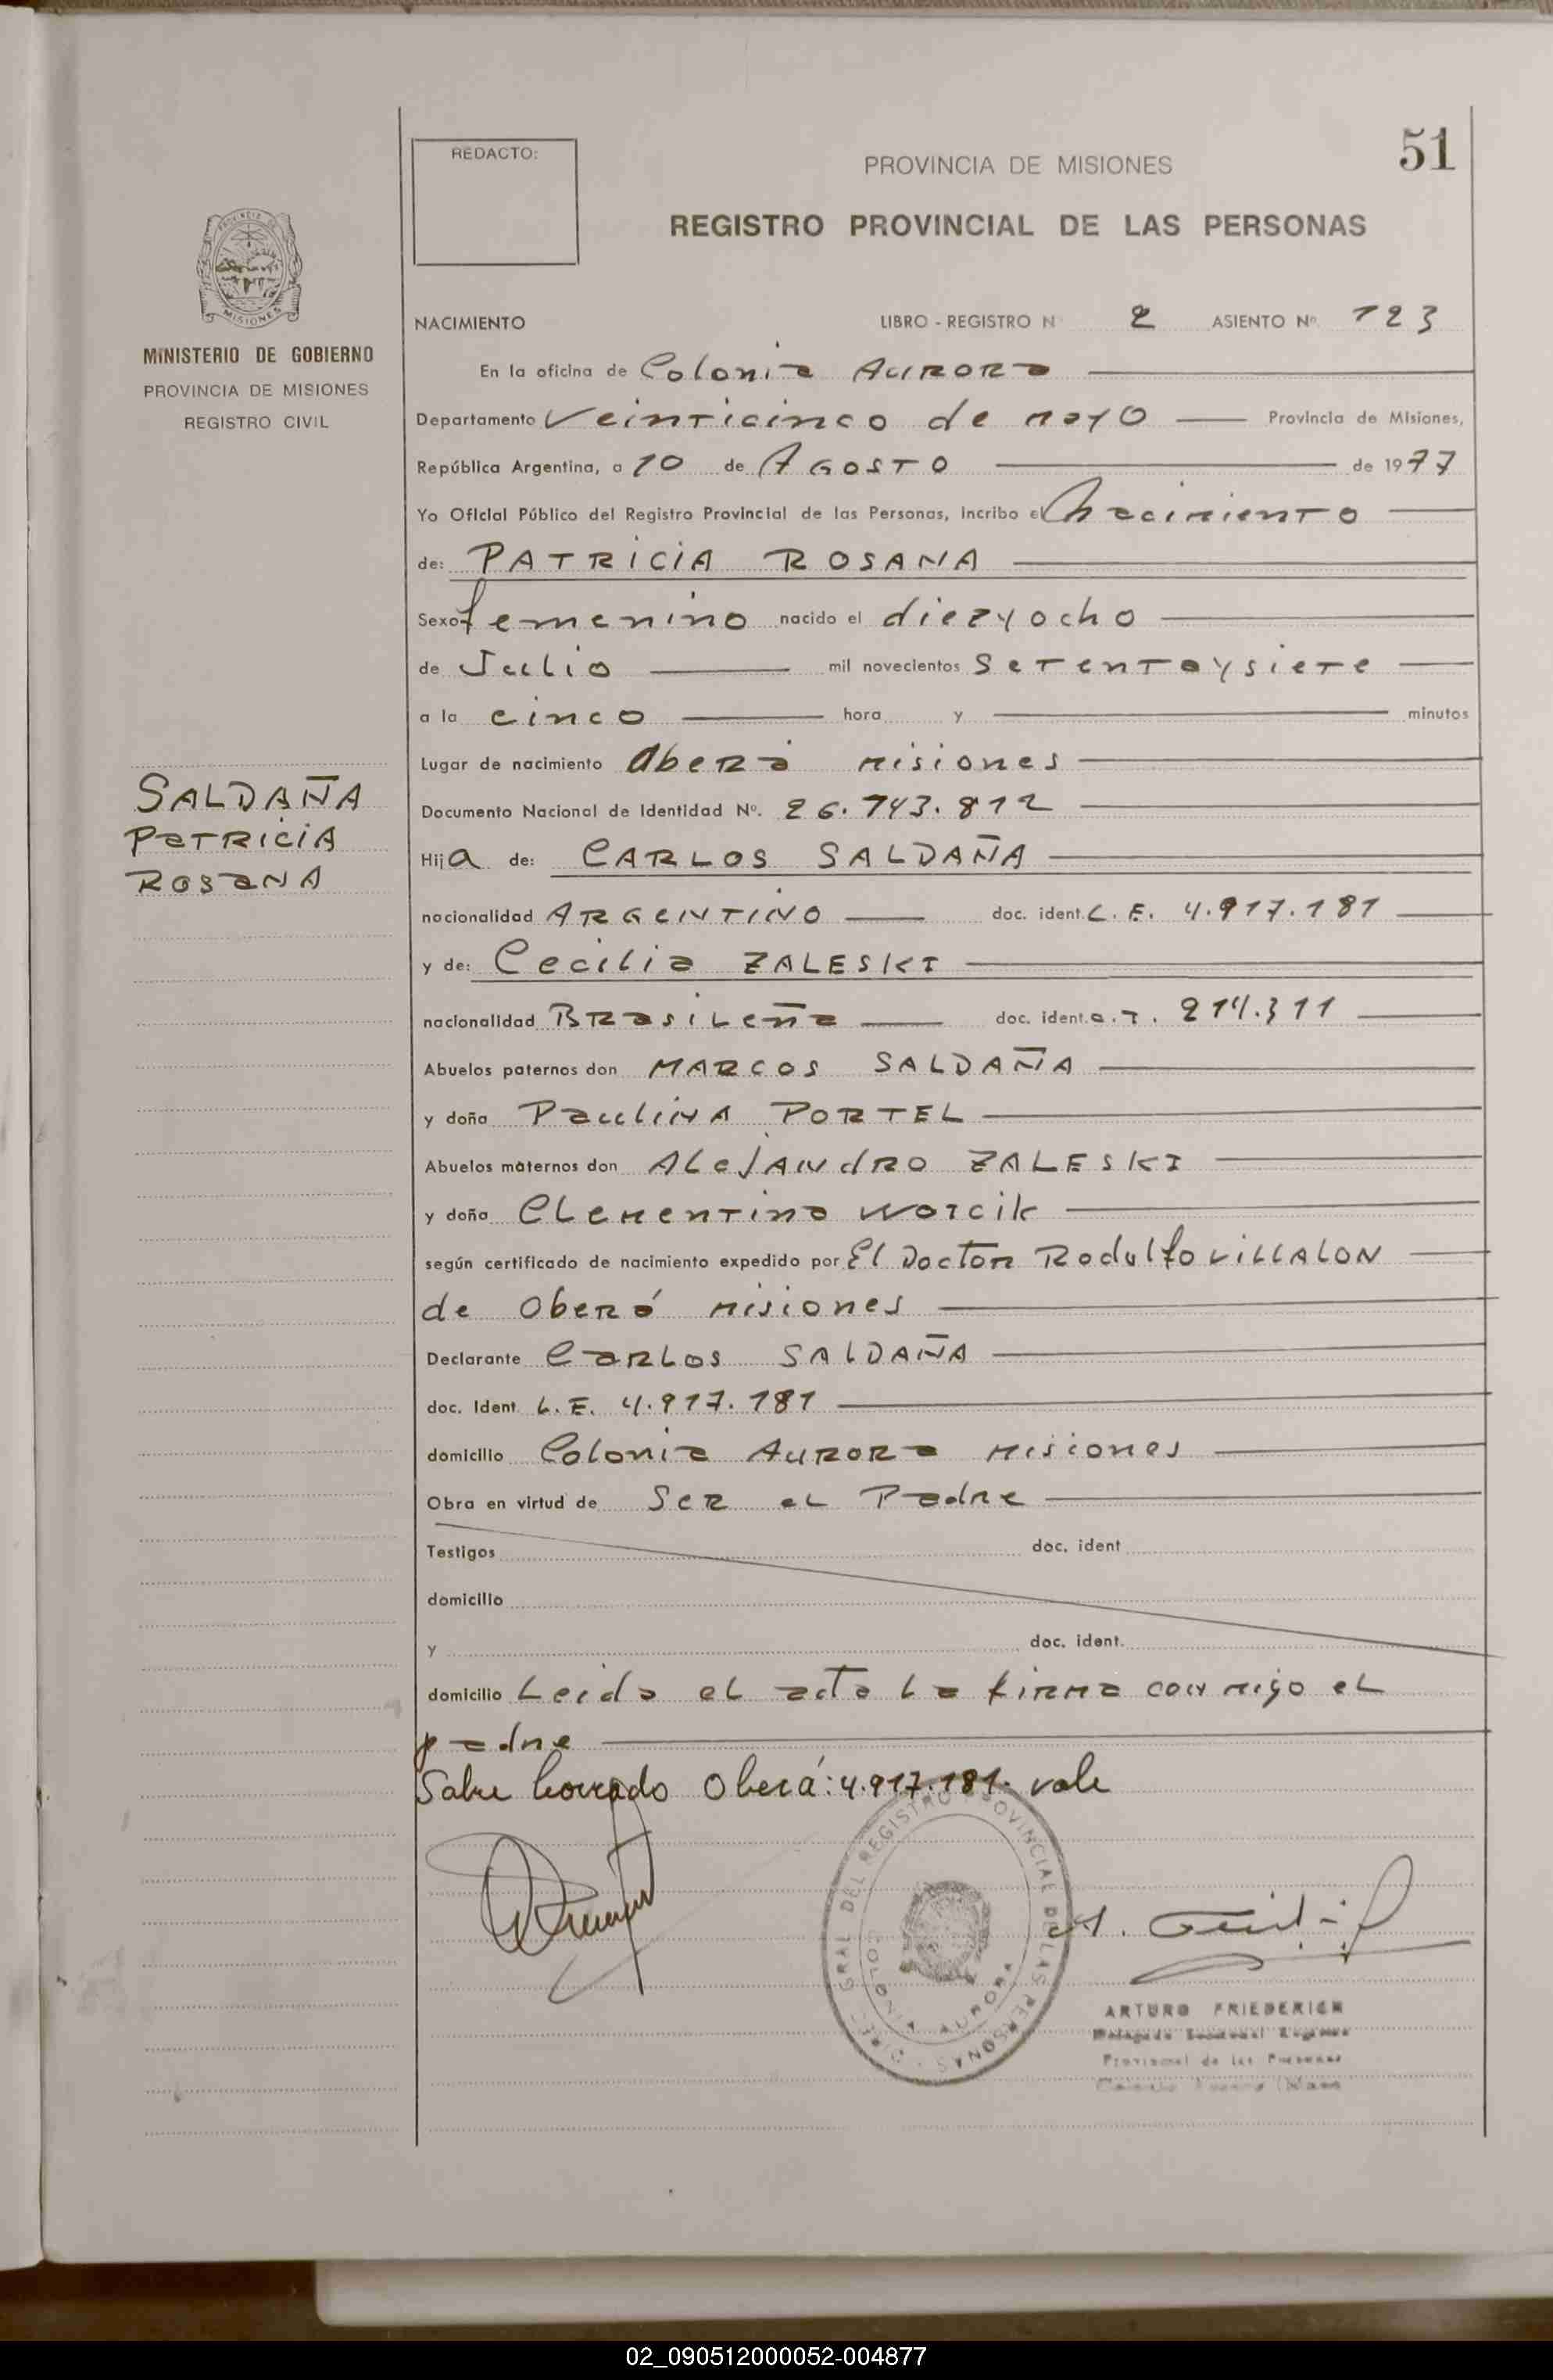 51
REDACTO:
PROVINCIA DE MISIONES
REGISTRO PROVINCIAL DE LAS PERSONAS
MINISTERIO DE GOBIERNO
PROVINCIA DE MISIONES
REGISTRO CIVIL
NACIMIENTO LIBRO - REGISTRO N 2 ASIENTO Nº 123
En la oficina de Colonia AURORA
Departamento Veinticinco de mayo Provincia de Misiones,
República Argentina, a 10 de AGOSTO de 1977
Yo Oficial Público del Registro Provincial de las Personas, incribo el Nacimiento
de: PATRICIA ROSANA
Sexo femenino nacido el diezyocho
de Julio mil novecientos Setentaysiete
a la cinco hora y minutos
Lugar de nacimiento Oberá Misiones
SALDAÑA
PATRICIA
ROSANA
Documento Nacional de Identidad Nº. 26.743.812
Hija de: CARLOS SALDAÑA
nacionalidad ARGENTINO doc. ident. L.E. 4.917.181
y de: Cecilia ZALESKI
nacionalidad BRasiLeña doc. ident. 214.311
Abuelos paternos don MARCOS SALDAÑA
y doña PaulINA PORTEL
Abuelos maternos don ALeJANdRO ZALESKI
y doña CLementina Worcik
según certificado de nacimiento expedido por El Doctor Rodulfo VILLALON
de Oberá Misiones
Declarante CARLOS SALDAÑA
doc. Ident L.E. 4.917.181
domicilio Colonia AURORA Misiones
Obra en virtud de Ser el Padre
Testigos doc. ident
domicilio
y doc. ident.
domicilio Leida el acta La firma con migo el
padre
Sobre borrado Oberá: 4.917.181. vale
DIREC. GRAL. DEL REGISTRO PROVINCIAL DE LAS PERSONAS
COLONIA AURORA
ARTURO FRIEDERICH
Provincial de las Personas
02_090512000052-004877